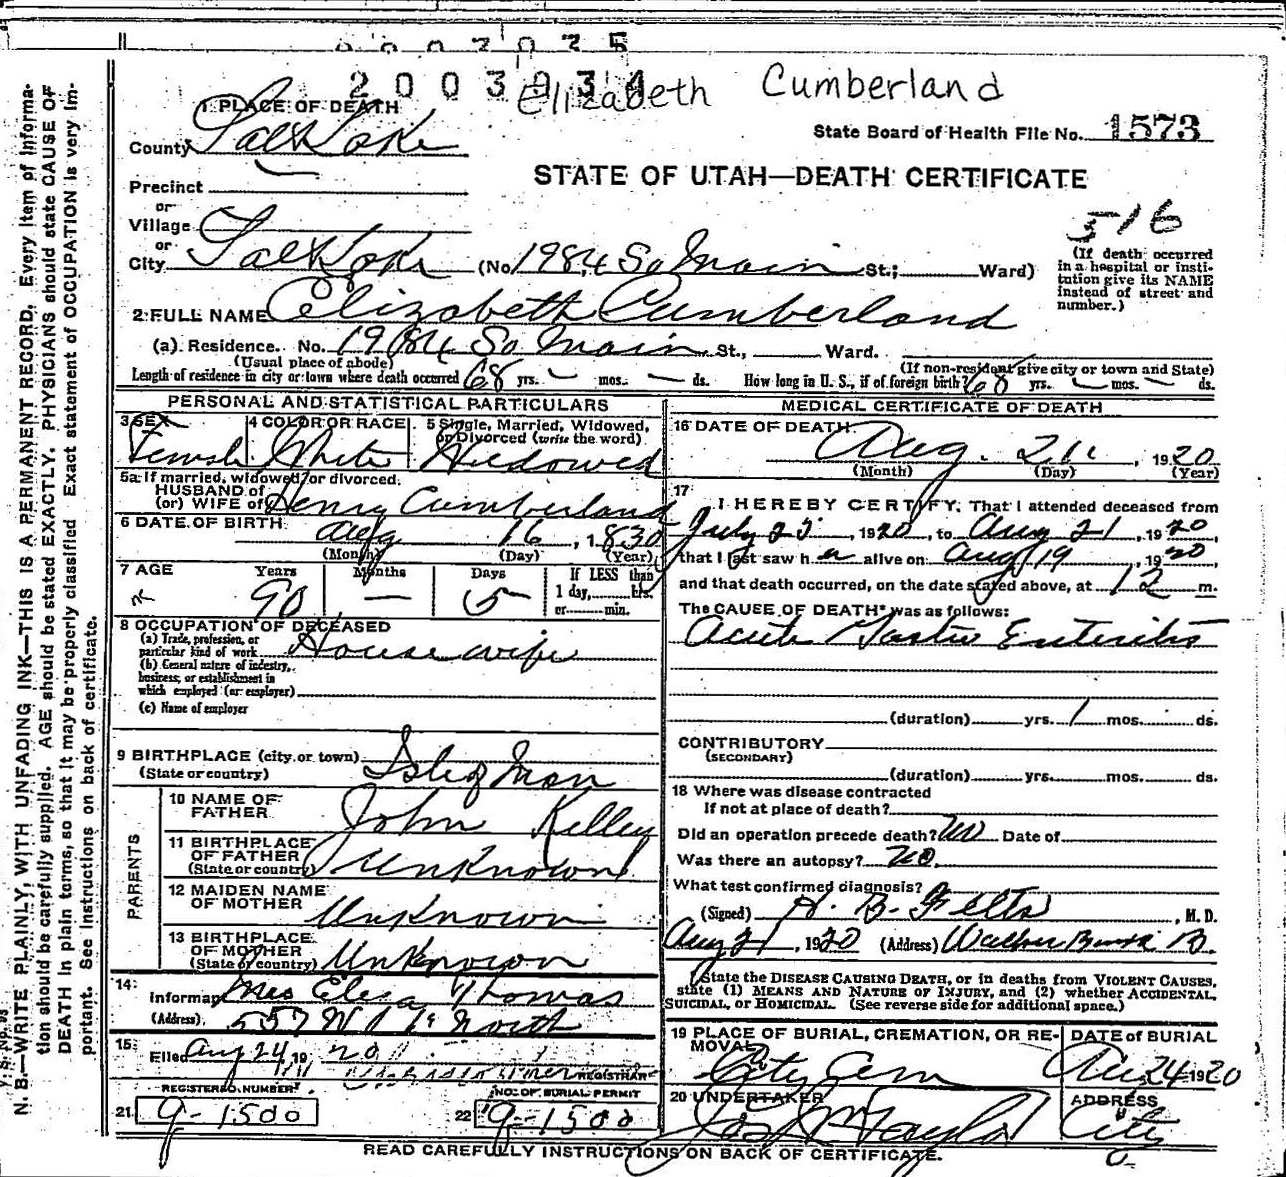 2003934
Elizabeth Cumberland
1 PLACE OF DEATH
County Salt Lake
State Board of Health File No. 1573
STATE OF UTAH—DEATH CERTIFICATE
Precinct
or
Village
516
or
City Salt Lake (No. 1984 So Main St.; Ward)
(If death occurred in a hospital or insti-
tution give its NAME instead of street and number.)
2 FULL NAME Elizabeth Cumberland
(a) Residence. No. 1984 So Main St., Ward.
(Usual place of abode) (If non-resident give city or town and State)
Length of residence in city or town where death occurred 68 yrs. — mos. — ds. How long in U. S., if of foreign birth? 68 yrs. — mos. — ds.
PERSONAL AND STATISTICAL PARTICULARS
3 SEX Female
4 COLOR OR RACE White
5 Single, Married, Widowed, or Divorced (write the word) Widowed
5a If married, widowed, or divorced.
HUSBAND of
(or) WIFE of Henry Cumberland
6 DATE OF BIRTH Aug 16, 1830
(Month) (Day) (Year)
7 AGE Years 90 Months — Days 5
If LESS than 1 day, hrs. or min.
8 OCCUPATION OF DECEASED
(a) Trade, profession, or particular kind of work Housewife
(b) General nature of industry, business, or establishment in which employed (or employer)
(c) Name of employer
9 BIRTHPLACE (city or town) Isle of Man
(State or country)
PARENTS
10 NAME OF FATHER John Kelley
11 BIRTHPLACE OF FATHER (State or country) Unknown
12 MAIDEN NAME OF MOTHER Unknown
13 BIRTHPLACE OF MOTHER (State or country) Unknown
14 Informant Mrs Eliza Thomas
(Address) 557 W North
15 Filed Aug 24, 1920
REGISTRAR
REGISTERED NUMBER
21 9-1500
NO. OF BURIAL PERMIT
22 9-1500
MEDICAL CERTIFICATE OF DEATH
16 DATE OF DEATH Aug. 21, 1920
(Month) (Day) (Year)
17 I HEREBY CERTIFY, That I attended deceased from
July 23, 1920, to Aug 21, 1920
that I last saw her alive on Aug 19, 1920
and that death occurred, on the date stated above, at 12 m.
The CAUSE OF DEATH* was as follows:
Acute Gastro Enteritis
(duration) yrs. 1 mos. ds.
CONTRIBUTORY
(SECONDARY)
(duration) yrs. mos. ds.
18 Where was disease contracted
If not at place of death?
Did an operation precede death? No Date of
Was there an autopsy? No.
What test confirmed diagnosis?
(Signed) H. B. Felts, M. D.
Aug 21, 1920 (Address) Walker Bank B.
State the DISEASE CAUSING DEATH, or in deaths from VIOLENT CAUSES, state (1) MEANS AND NATURE OF INJURY, and (2) whether ACCIDENTAL, SUICIDAL, or HOMICIDAL. (See reverse side for additional space.)
19 PLACE OF BURIAL, CREMATION, OR RE-
MOVAL City Cem
DATE of BURIAL
Aug 24 1920
20 UNDERTAKER Jos Wm Taylor
ADDRESS City
READ CAREFULLY INSTRUCTIONS ON BACK OF CERTIFICATE.
N. B.—WRITE PLAINLY, WITH UNFADING INK—THIS IS A PERMANENT RECORD. Every item of informa-
tion should be carefully supplied. AGE should be stated EXACTLY. PHYSICIANS should state CAUSE OF
DEATH in plain terms, so that it may be properly classified. Exact statement of OCCUPATION is very im-
portant. See instructions on back of certificate.